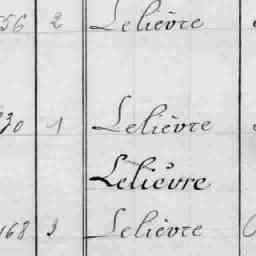 56 2 Lelièvre
30 1 Lelièvre
Lelièvre
168 3 Lelièvre